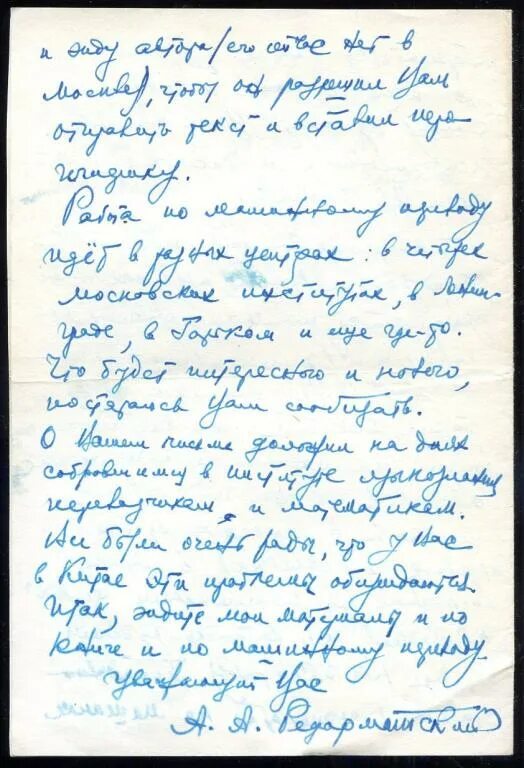 и жду автора (его сейчас нет в
Москве), чтобы он разрешил Вам
отправить текст и вставил
Работа по машинному переводу
идёт в разных центрах: в четырех
московских институтах, в Ленин-
граде, в Горьком и еще где-то.
Что будет интересного и нового,
постараюсь Вам сообщать.
О Вашем письме доложил на днях
собравшимся в институте языкознания
переводчикам и математикам.
Все были очень рады, что у Вас
в Китае эти проблемы обсуждаются.
Итак, ждите мои материалы и по
книге и по машинному переводу.
Уважающий Вас
А. А. Реформатский